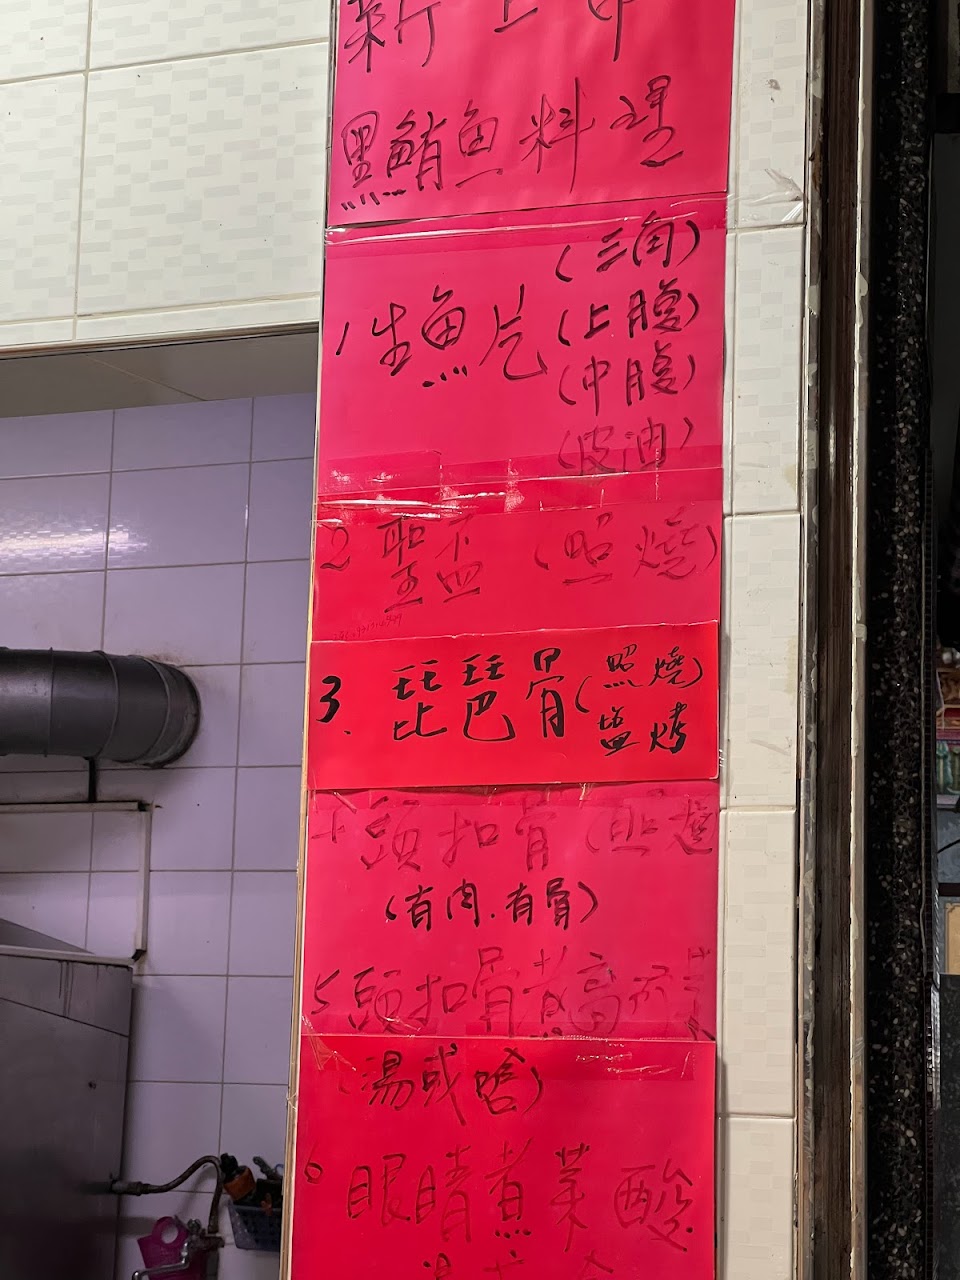 新上市
黑鮪魚料理
1生魚片(三角)
(上腹)
(中腹)
(皮油)
2聖盃(照燒)
3.琵琶骨(照燒)
塩烤
頭扣骨(照燒
(有肉.有骨)
5頭扣骨煮高麗菜
湯或
6眼睛煮菜酸
湯